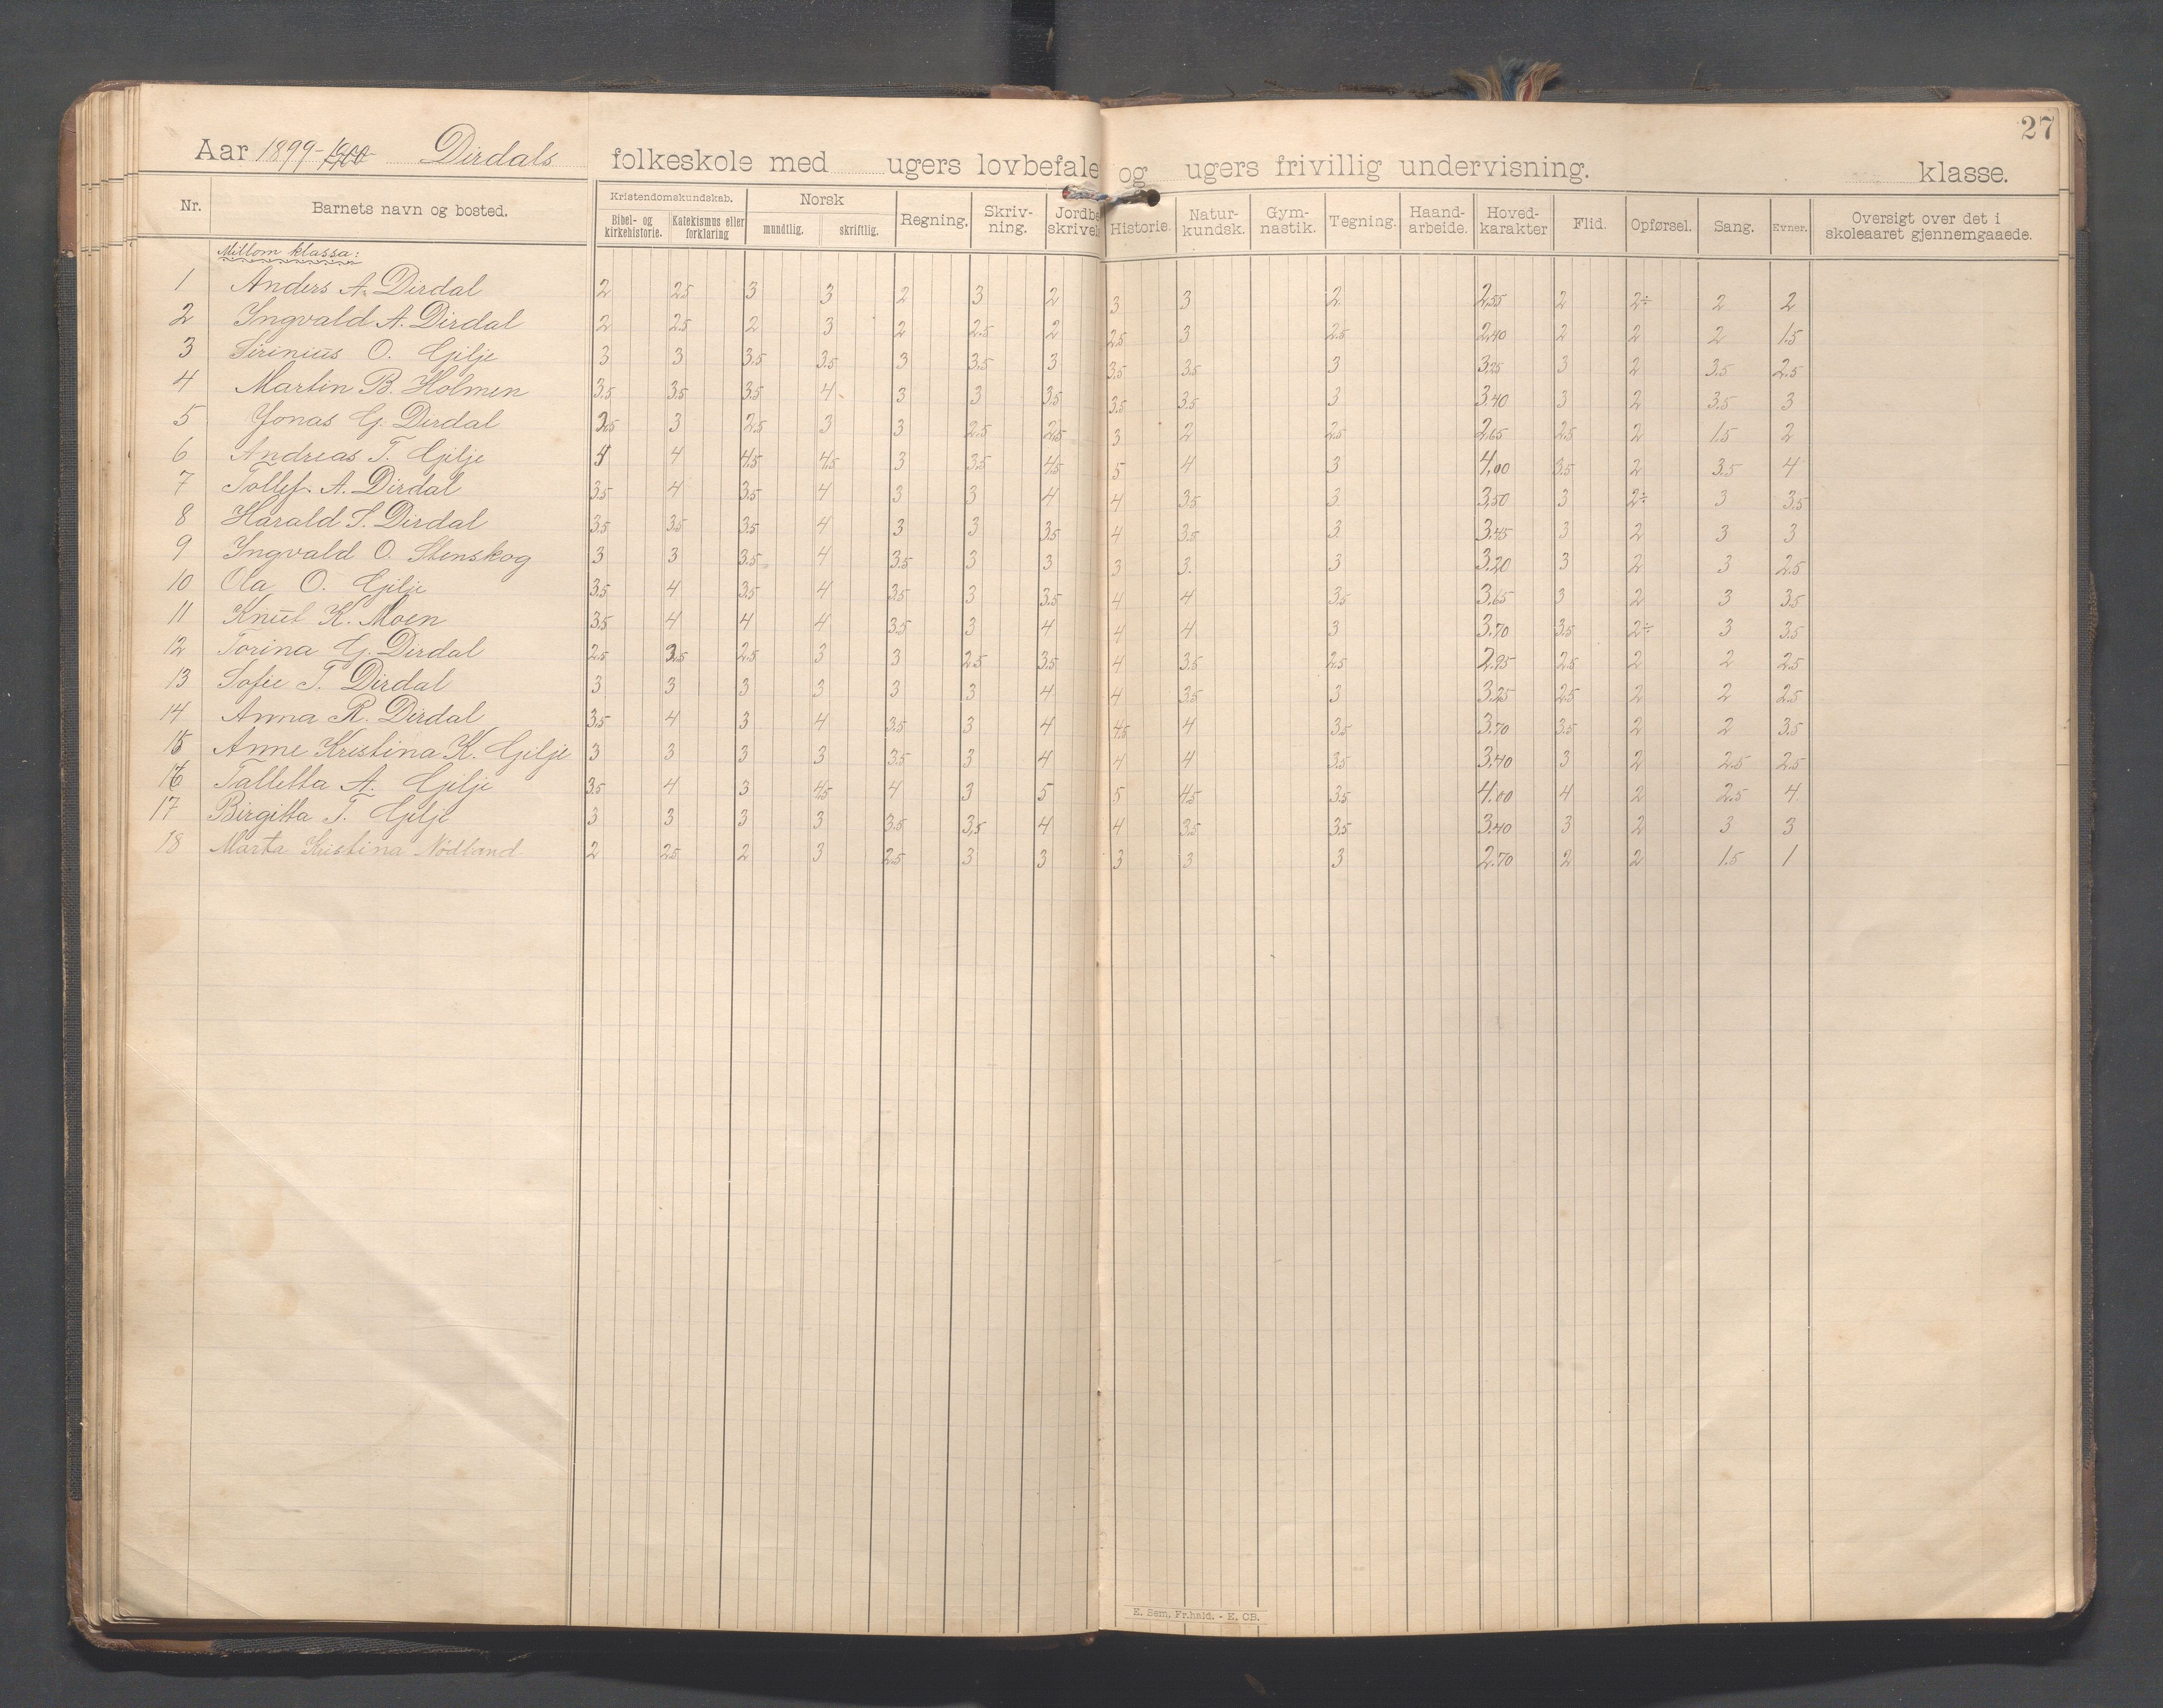 27
Aar 1899-1900 Dirdals folkeskole med ugers lovbefale og ugers frivillig undervisning. klasse.
Nr. Barnets navn og bosted. Kristendomskundskab. Bibel- og kirkehistorie. Katekismus eller forklaring Norsk mundtlig. skriftlig. Regning. Skriv-ning. Jordbe skrivel Historie. Natur-kundsk. Gym-nastik. Tegning. Haand-arbeide. Hoved-karakter Flid. Opførsel. Sang. Evner. Oversigt over det i skoleaaret gjennemgaaede.
Millom klassa:
1 Anders A. Dirdal 2 2.5 3 3 2 3 2 3 3 2 2,55 2 2÷ 2 2
2 Ingvald A. Dirdal 2 2.5 2 3 2 2.5 2 2.5 3 2.5 2,40 2 2 2 1.5
3 Sirinius O. Gilje 3 3 3.5 3.5 3 3.5 3 3.5 3.5 3 3,25 3 2 3.5 2.5
4 Martin B. Holmen 3.5 3.5 3.5 4 3 3 3.5 3.5 3.5 3 3.40 3 2 3.5 3
5 Jonas G. Dirdal 2.5 3 2.5 3 3 2.5 2.5 3 2 2.5 2,65 2.5 2 1.5 2
6 Andreas T. Gilje 4 4.5 4.5 3 3.5 4.5 5 4 3 4,00 3.5 2 3.5 4
7 Tollef A. Dirdal 3.5 4 3.5 4 3 3 4 4 3.5 3 3,50 3 2÷ 3 3.5
8 Harald S. Dirdal 3.5 3.5 3.5 4 3 3 3.5 4 3.5 3 3.45 3 2 3 3
9 Ingvald O. Stenskog 3 3 3.5 4 3.5 3 3 3 3. 3 3.20 3 2 3 2.5
10 Ola O. Gilje 3.5 4 3.5 4 3.5 3 3.5 4 4 3.5 3,65 3 2 3 3.5
11 Knut K. Moen 3.5 4 4 4 3.5 3 4 4 4 3 3.70 3.5 2÷ 3 3.5
12 Torina G. Dirdal 2.5 3.5 2.5 3 3 2.5 3.5 4 3.5 2.5 2.95 2.5 2 2 2.5
13 Sofie T. Dirdal 3 3 3 3 3 3 4 4 3.5 3 3.25 2.5 2 2 2.5
14 Anna R. Dirdal 3.5 4 3 4 3.5 3 4 4.5 4 3.5 3.70 3.5 2 2 3.5
15 Anne Kristina K. Gilje 3 3 3 3 3.5 3 4 4 4 3.5 3,40 3 2 2.5 2.5
16 Talletta A. Gilje 3.5 4 3 4.5 4 3 5 5 4.5 3.5 4.00 4 2 2.5 4
17 Birgitta T. Gilje 3 3 3 3 3.5 3,5 4 4 3.5 3.5 3.40 3 2 3 3
18 Marta Kristina Nødland 2 2.5 2 3 2.5 3 3 3 3 3 2.70 2 2 1.5 1
E. Sem, Fr.hald. - E. CB.